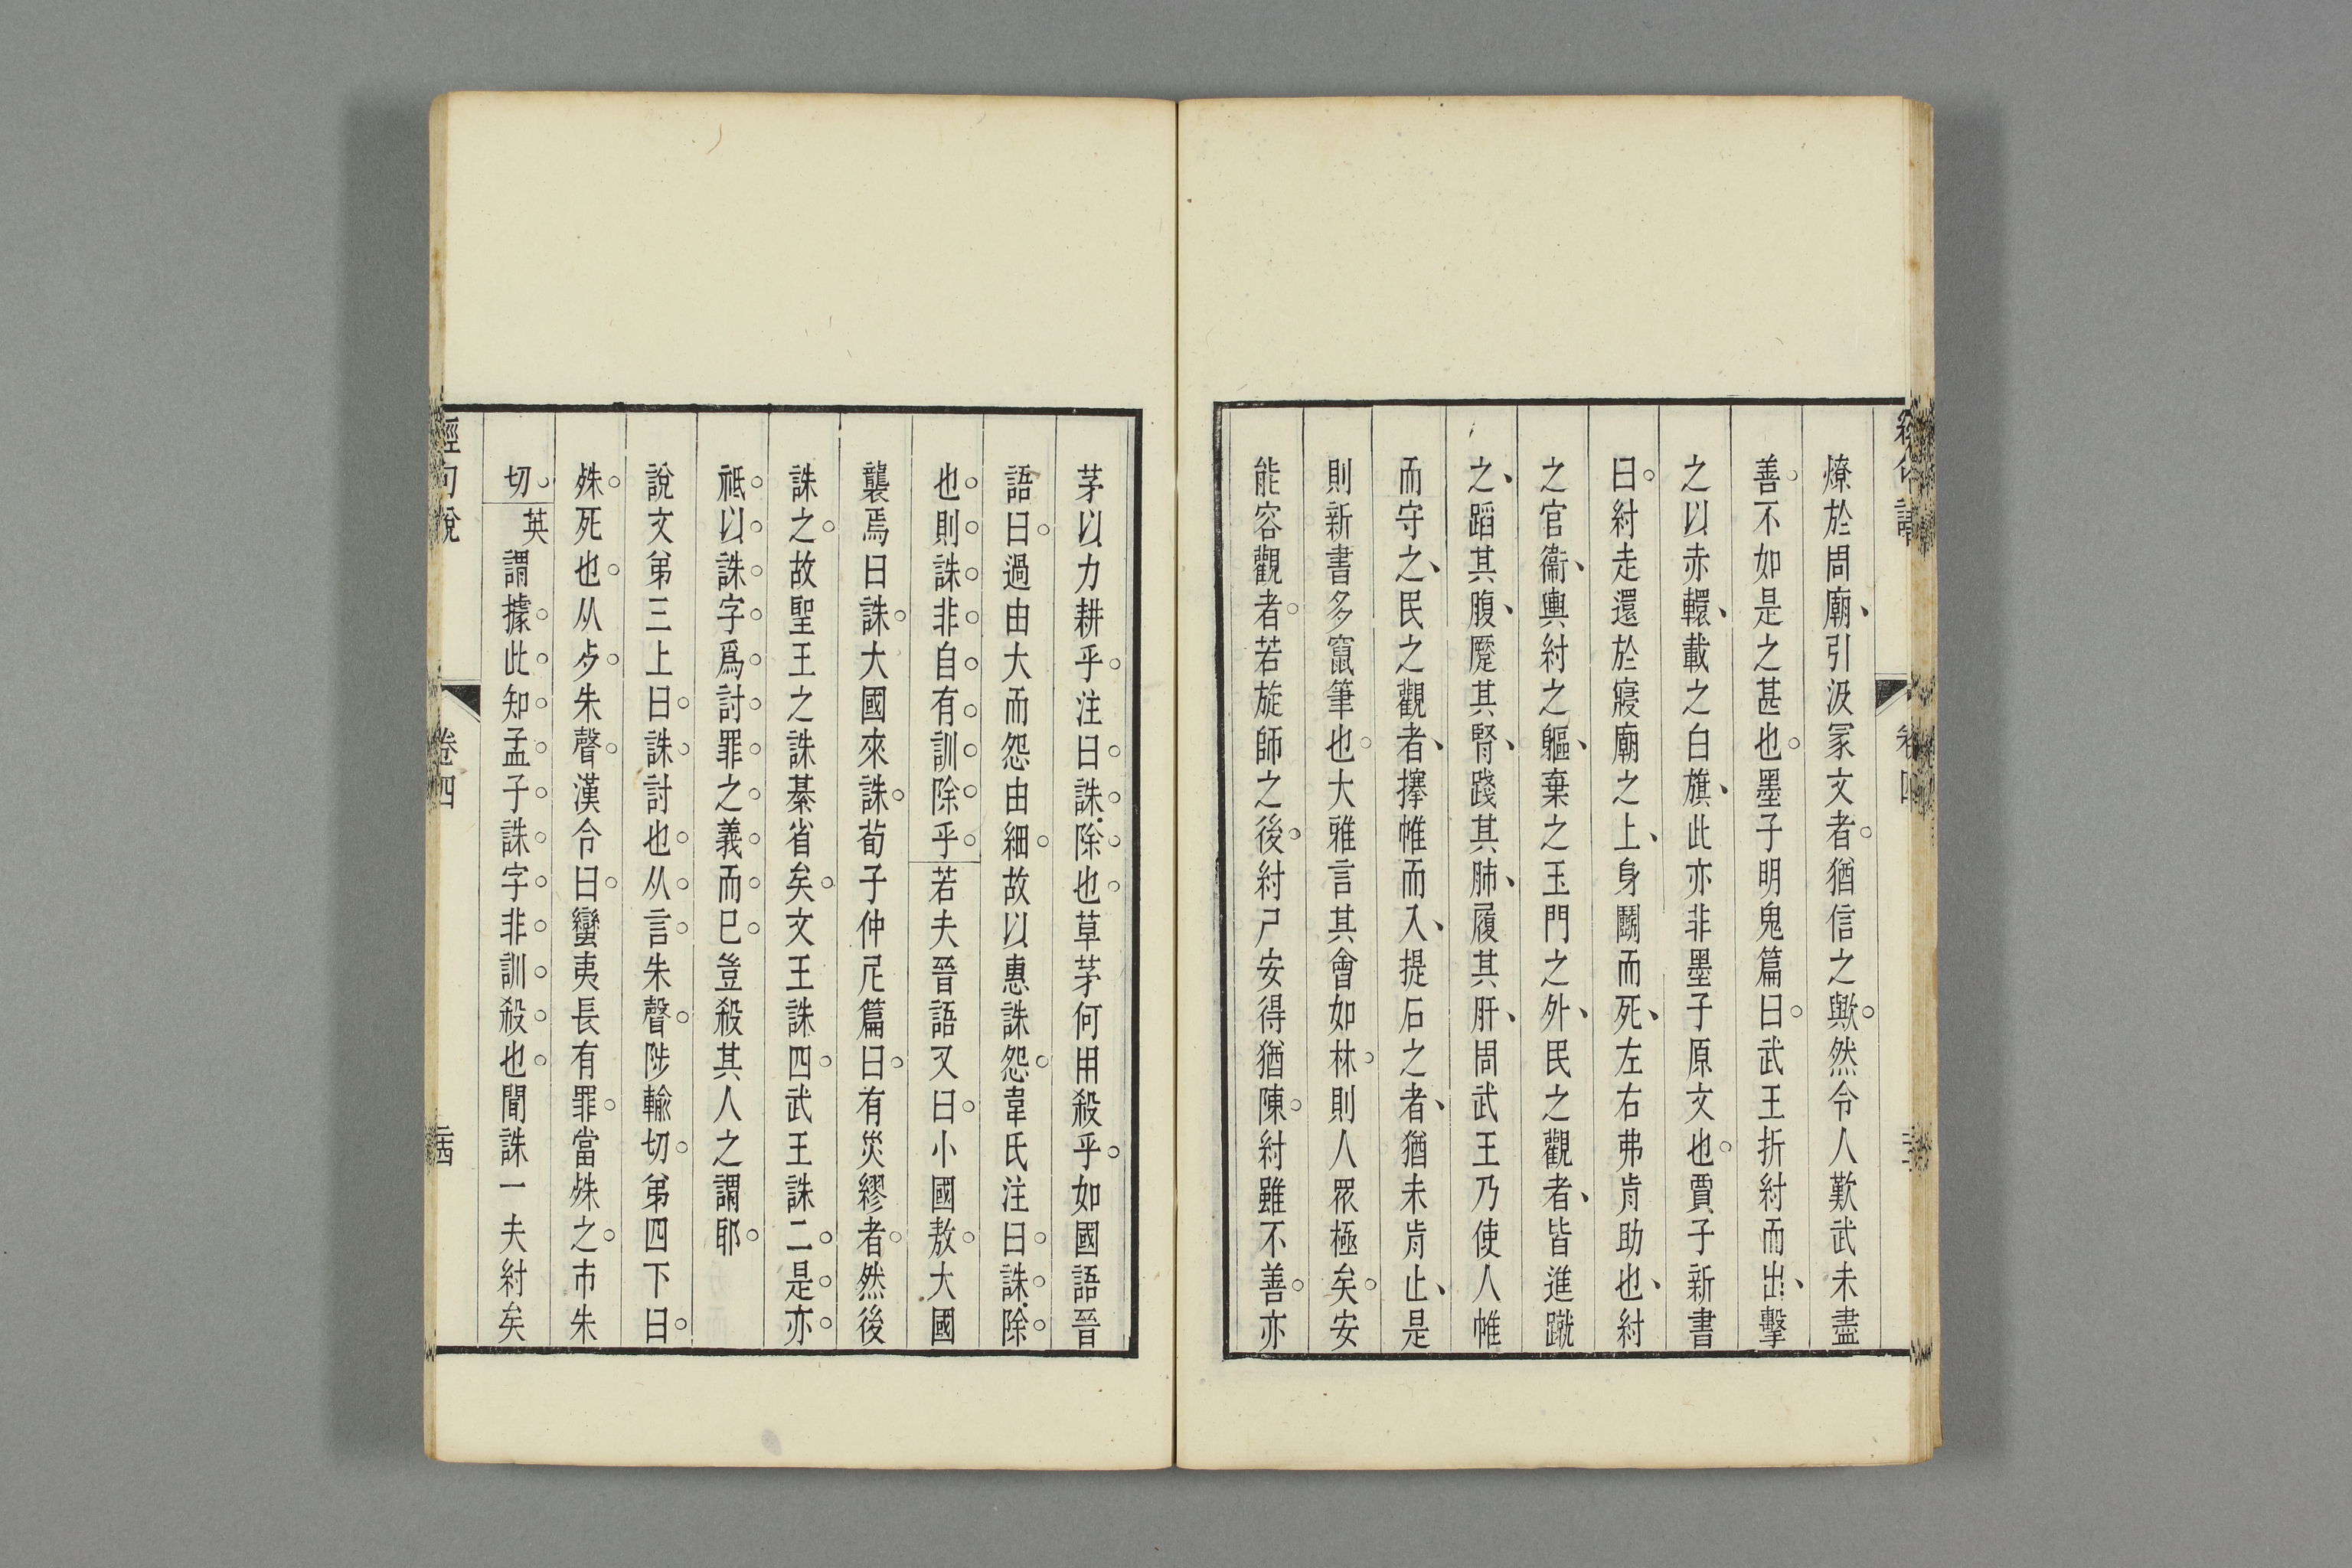 燎於周廟引汲冢文者猶信之歟然令人歎武未盡
善不如是之甚也墨子明鬼篇曰武王折紂而出擊
之以赤轘載之白旗此亦非墨子原文也賈子新書
曰紂走還於寢廟之上身鬬而死左右弗肯助也紂
之官衞輿紂之軀棄之玉門之外民之觀者皆進蹴
之蹈其腹蹷其腎踐其肺履其肝周武王乃使人帷
而守之民之觀者搴帷而入提石之者猶未肯止是
則新書多竄筆也大雅言其會如林則人眾極矣安
能容觀者若旋師之後紂尸安得猶陳紂雖不善亦
茅以力耕乎注曰誅除也草茅何用殺乎如國語晉
語曰過由大而怨由細故以惠誅怨韋氏注曰誅除
也則誅非自有訓除乎若夫晉語又曰小國敖大國
襲焉曰誅大國來誅荀子仲尼篇曰有災繆者然後
誅之故聖王之誅綦省矣文王誅四武王誅二是亦
祗以誅字爲討罪之義而巳豈殺其人之謂耶
說文弟三上曰誅討也从言朱聲陟輸切弟四下曰
殊死也从歺朱聲漢令曰蠻夷長有罪當殊之市朱
切英謂據此知孟子誅字非訓殺也聞誅一夫紂矣
經句說 卷四